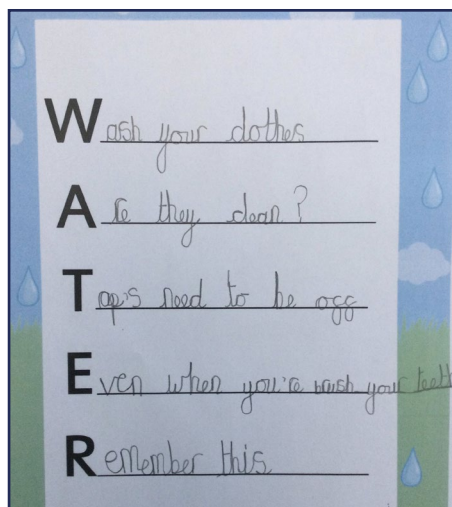 Wash your clothes
Are they clean?
Tap's need to be ogg
Even when you're brush your teeth
Remember this